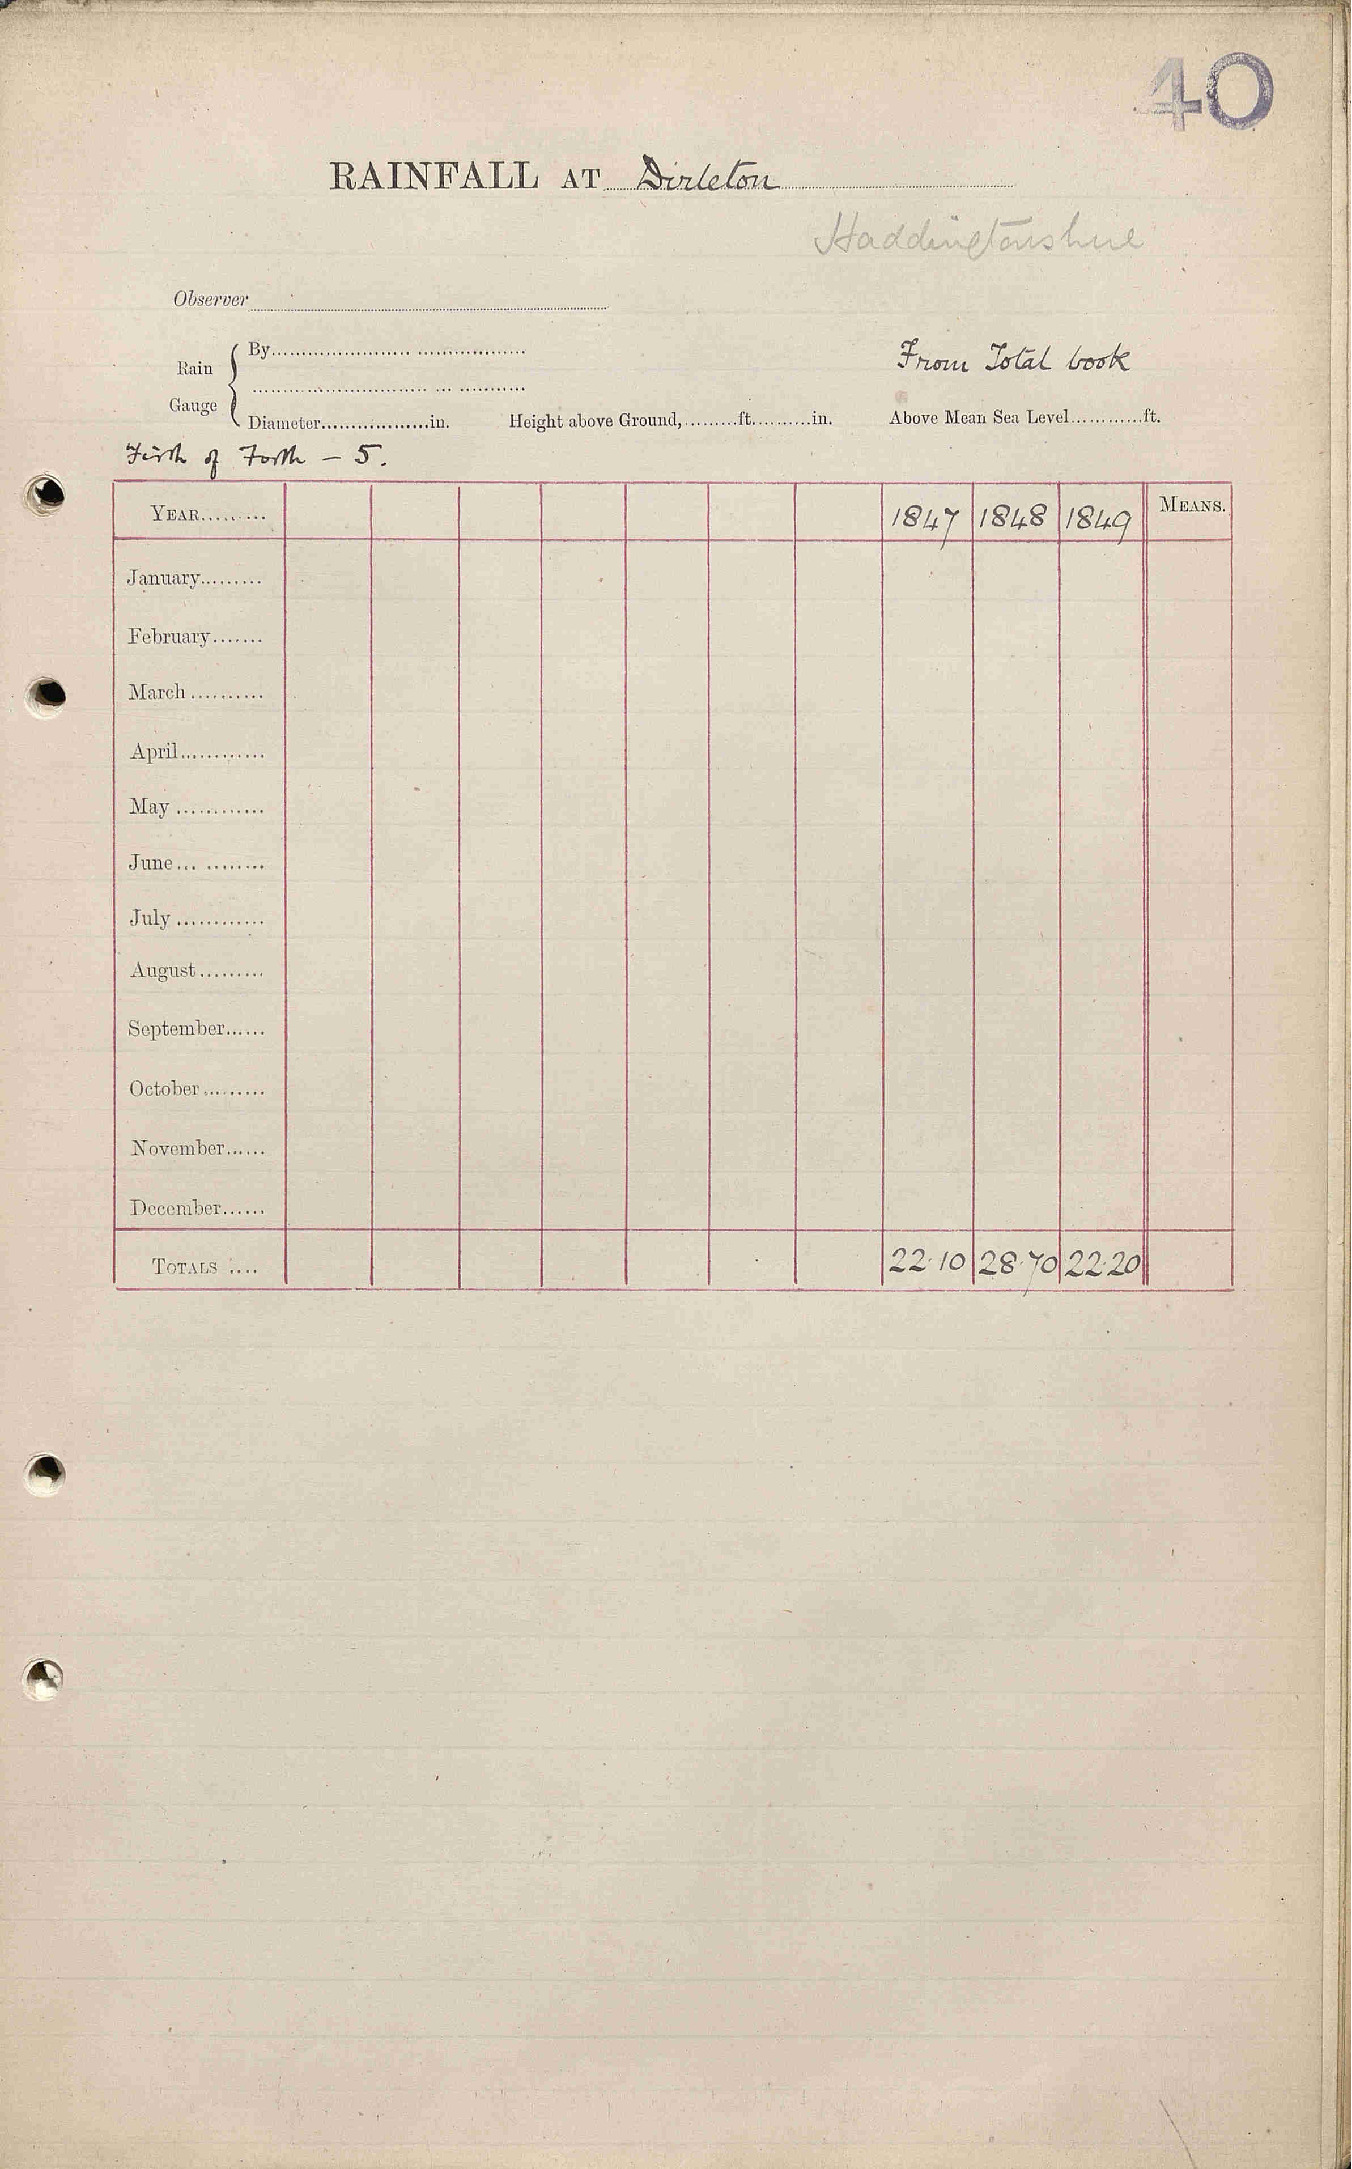 40
RAINFALL AT Dirleton
Haddingtonshire
Observer
Rain Gauge { By
From Total book
Diameter in. Height above Ground, ft. in. Above Mean Sea Level ft.
Firth of Forth - 5.
YEAR 1847 1848 1849 MEANS.
January
February
March
April
May
June
July
August
September
October
November
December
TOTALS 22.10 28.70 22.20